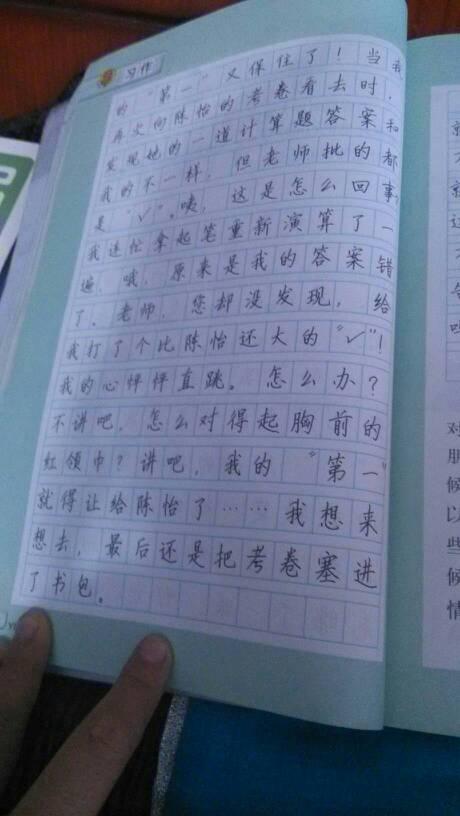 习作
的“第一”又保住了！当我
再次向陈怡的考卷看去时，
发现她的一道计算题答案和
我的不一样，但老师批的都
是“√”。咦，这是怎么回事，
我连忙拿起笔重新演算了一
遍，哦，原来是我的答案错
了，老师，您却没发现，给
我打了个比陈怡还大的“√”！
我的心怦怦直跳。怎么办？
不讲吧，怎么对得起胸前的
红领巾？讲吧，我的“第一”
就得让给陈怡了……我想来
想去，最后还是把考卷塞进
了书包。
就
就
这
对
肌
候
以
些
候
情